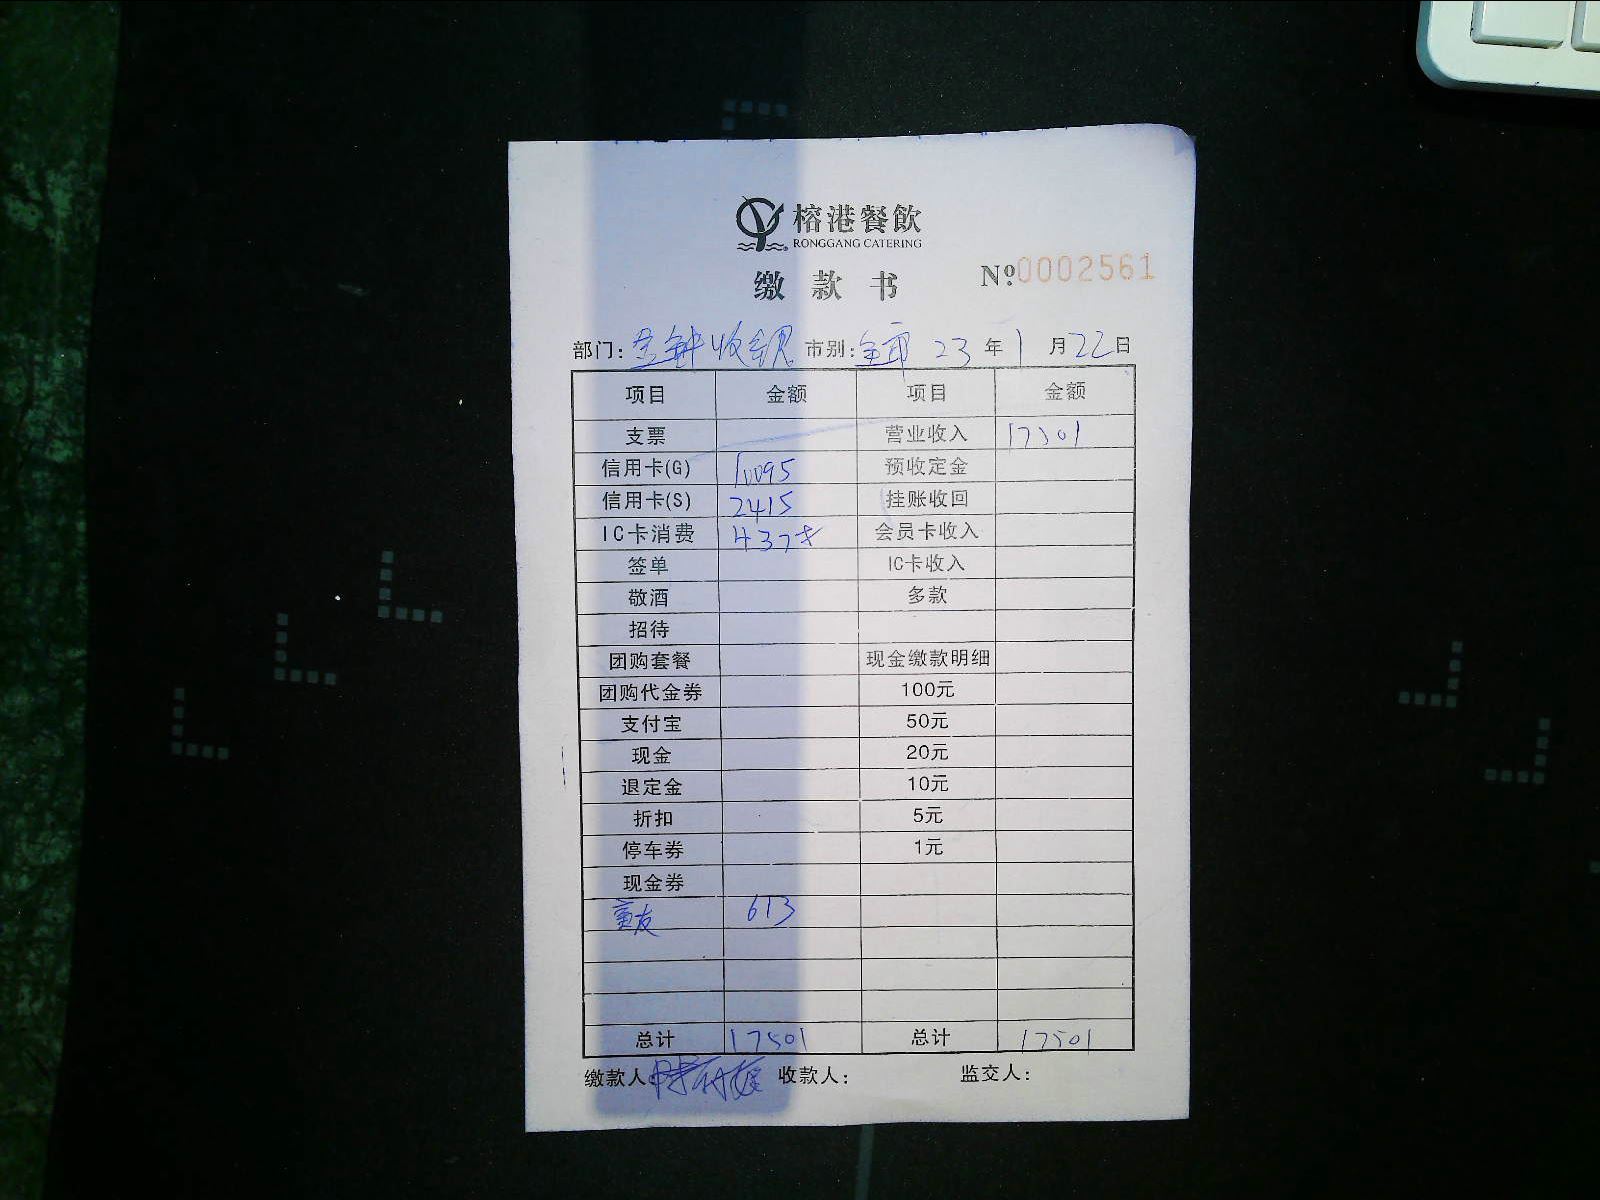 榕港餐飲
RONGGANG CATERING
缴款书 Nº.0002561
部门: 金钟收银 市别: 全市 23 年 1 月 22 日
项目 金额 项目 金额
支票 营业收入 17501
信用卡(G) 10095 预收定金
信用卡(S) 2415 挂账收回
IC卡消费 4378 会员卡收入
签单 IC卡收入
敬酒 多款
招待
团购套餐 现金缴款明细
团购代金券 100元
支付宝 50元
现金 20元
退定金 10元
折扣 5元
停车券 1元
现金券
613
总计 17501 总计 17501
缴款人: 收款人: 监交人: